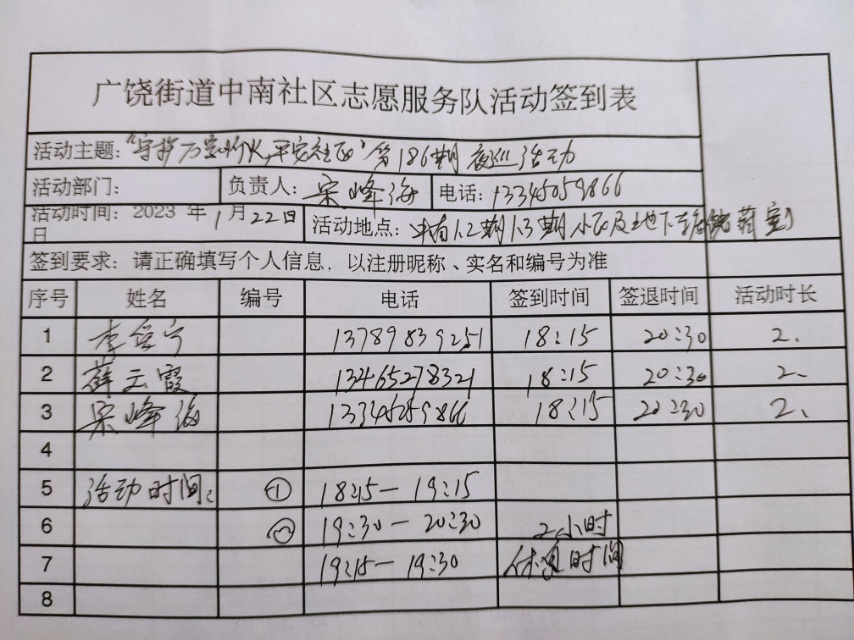 广饶街道中南社区志愿服务队活动签到表
活动主题："守护万家灯火,平安社区"第186期夜巡活动
活动部门： 负责人：宋峰海 电话：13345059866
活动时间：2023 年1月22日
活动地点： 1.2期1.3期小区及地下
签到要求：请正确填写个人信息，以注册昵称、实名和编号为准
序号 姓名 编号 电话 签到时间 签退时间 活动时长
1 李 宁 13789839251 18:15 20:30 2.
2 薛云霞 13465278321 18:15 20:30 2.
3 宋峰海 13345059866 18:15 20:30 2.
4
5 活动时间: ① 18:15— 19:15
6 ㊁ 19:30— 20:30 2小时
7 19:15— 19:30 休息时间
8